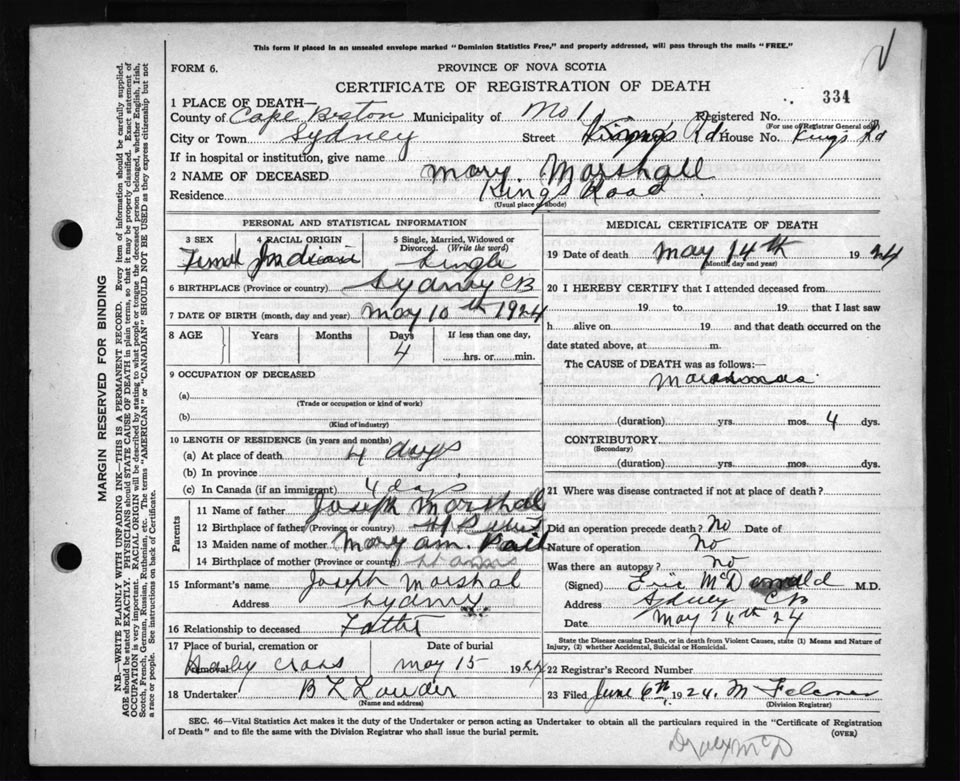 This form if placed in an unsealed envelope marked "Dominion Statistics Free," and properly addressed, will pass through the mails "FREE."
FORM 6.
PROVINCE OF NOVA SCOTIA
CERTIFICATE OF REGISTRATION OF DEATH
334
1 PLACE OF DEATH—
County of Cape Breton Municipality of No 1 Registered No.
(For use of Registrar General only)
City or Town Sydney Street Kings Rd House No. Kings Rd
If in hospital or institution, give name
2 NAME OF DECEASED Mary Marshall
Residence Kings Road
(Usual place of abode)
PERSONAL AND STATISTICAL INFORMATION
3 SEX 4 RACIAL ORIGIN 5 Single, Married, Widowed or Divorced. (Write the word)
Female Indian Single
6 BIRTHPLACE (Province or country) Sydney CB
7 DATE OF BIRTH (month, day and year) May 10th 1924
8 AGE Years Months Days If less than one day,
4 hrs. or min.
9 OCCUPATION OF DECEASED
(a)
(Trade or occupation or kind of work)
(b)
(Kind of industry)
10 LENGTH OF RESIDENCE (in years and months)
(a) At place of death 4 days
(b) In province
(c) In Canada (if an immigrant) 4 days
Parents
11 Name of father Joseph Marshal
12 Birthplace of father (Province or country)
13 Maiden name of mother Mary ann.
14 Birthplace of mother (Province or country)
15 Informant's name Joseph Marshal
Address Sydney
16 Relationship to deceased Father
17 Place of burial, cremation or removal Date of burial
Holy Cross May 15 1924
18 Undertaker B L Lauder
(Name and address)
MEDICAL CERTIFICATE OF DEATH
19 Date of death May 14th 1924
(Month, day and year)
20 I HEREBY CERTIFY that I attended deceased from
19 to 19 that I last saw
h alive on 19 and that death occurred on the
date stated above, at m.
The CAUSE OF DEATH was as follows:—
(duration) yrs. mos. 4 dys.
CONTRIBUTORY
(Secondary)
(duration) yrs. mos. dys.
21 Where was disease contracted if not at place of death?
Did an operation precede death? No Date of
Nature of operation No
Was there an autopsy? No
(Signed) Eric McDonald M.D.
Address Sydney CB
Date May 14th 24
State the Disease causing Death, or in death from Violent Causes, state (1) Means and Nature of Injury, (2) whether Accidental, Suicidal or Homicidal.
22 Registrar's Record Number
23 Filed June 6th 1924. M
(Division Registrar)
SEC. 46—Vital Statistics Act makes it the duty of the Undertaker or person acting as Undertaker to obtain all the particulars required in the "Certificate of Registration
of Death" and to file the same with the Division Registrar who shall issue the burial permit.
(OVER)
MARGIN RESERVED FOR BINDING
N.B.—WRITE PLAINLY WITH UNFADING INK—THIS IS A PERMANENT RECORD. Every item of information should be carefully supplied.
AGE should be stated EXACTLY. PHYSICIANS should STATE CAUSE OF DEATH in plain terms, so that it may be properly classified. Exact statement of
OCCUPATION is very important. RACIAL ORIGIN will be described by stating to what people or tongue the deceased person belonged, whether English, Irish,
Scotch, French, German, Russian, Ruthenian, etc. The terms "AMERICAN" or "CANADIAN" SHOULD NOT BE USED as they express citizenship but not
a race or people. See instructions on back of Certificate.